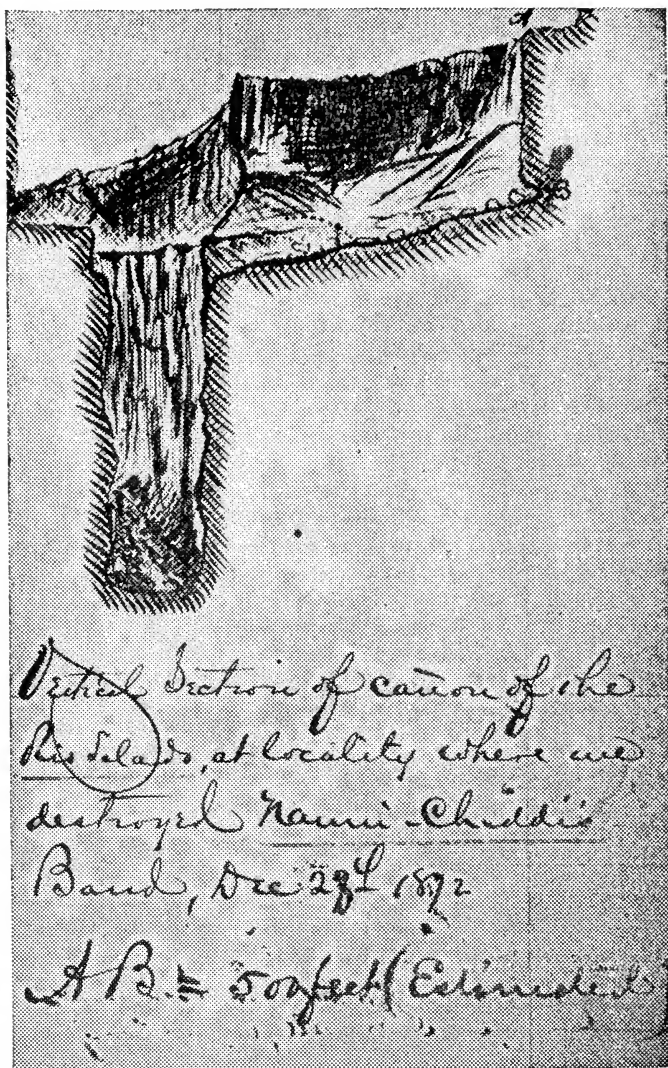 A
Vertical Section of cañon of the
Rio Salado, at locality where we
destroyed Nanni-Chaddi's
Band, Dec 28th 1872
AB = 500 feet (Estimated)